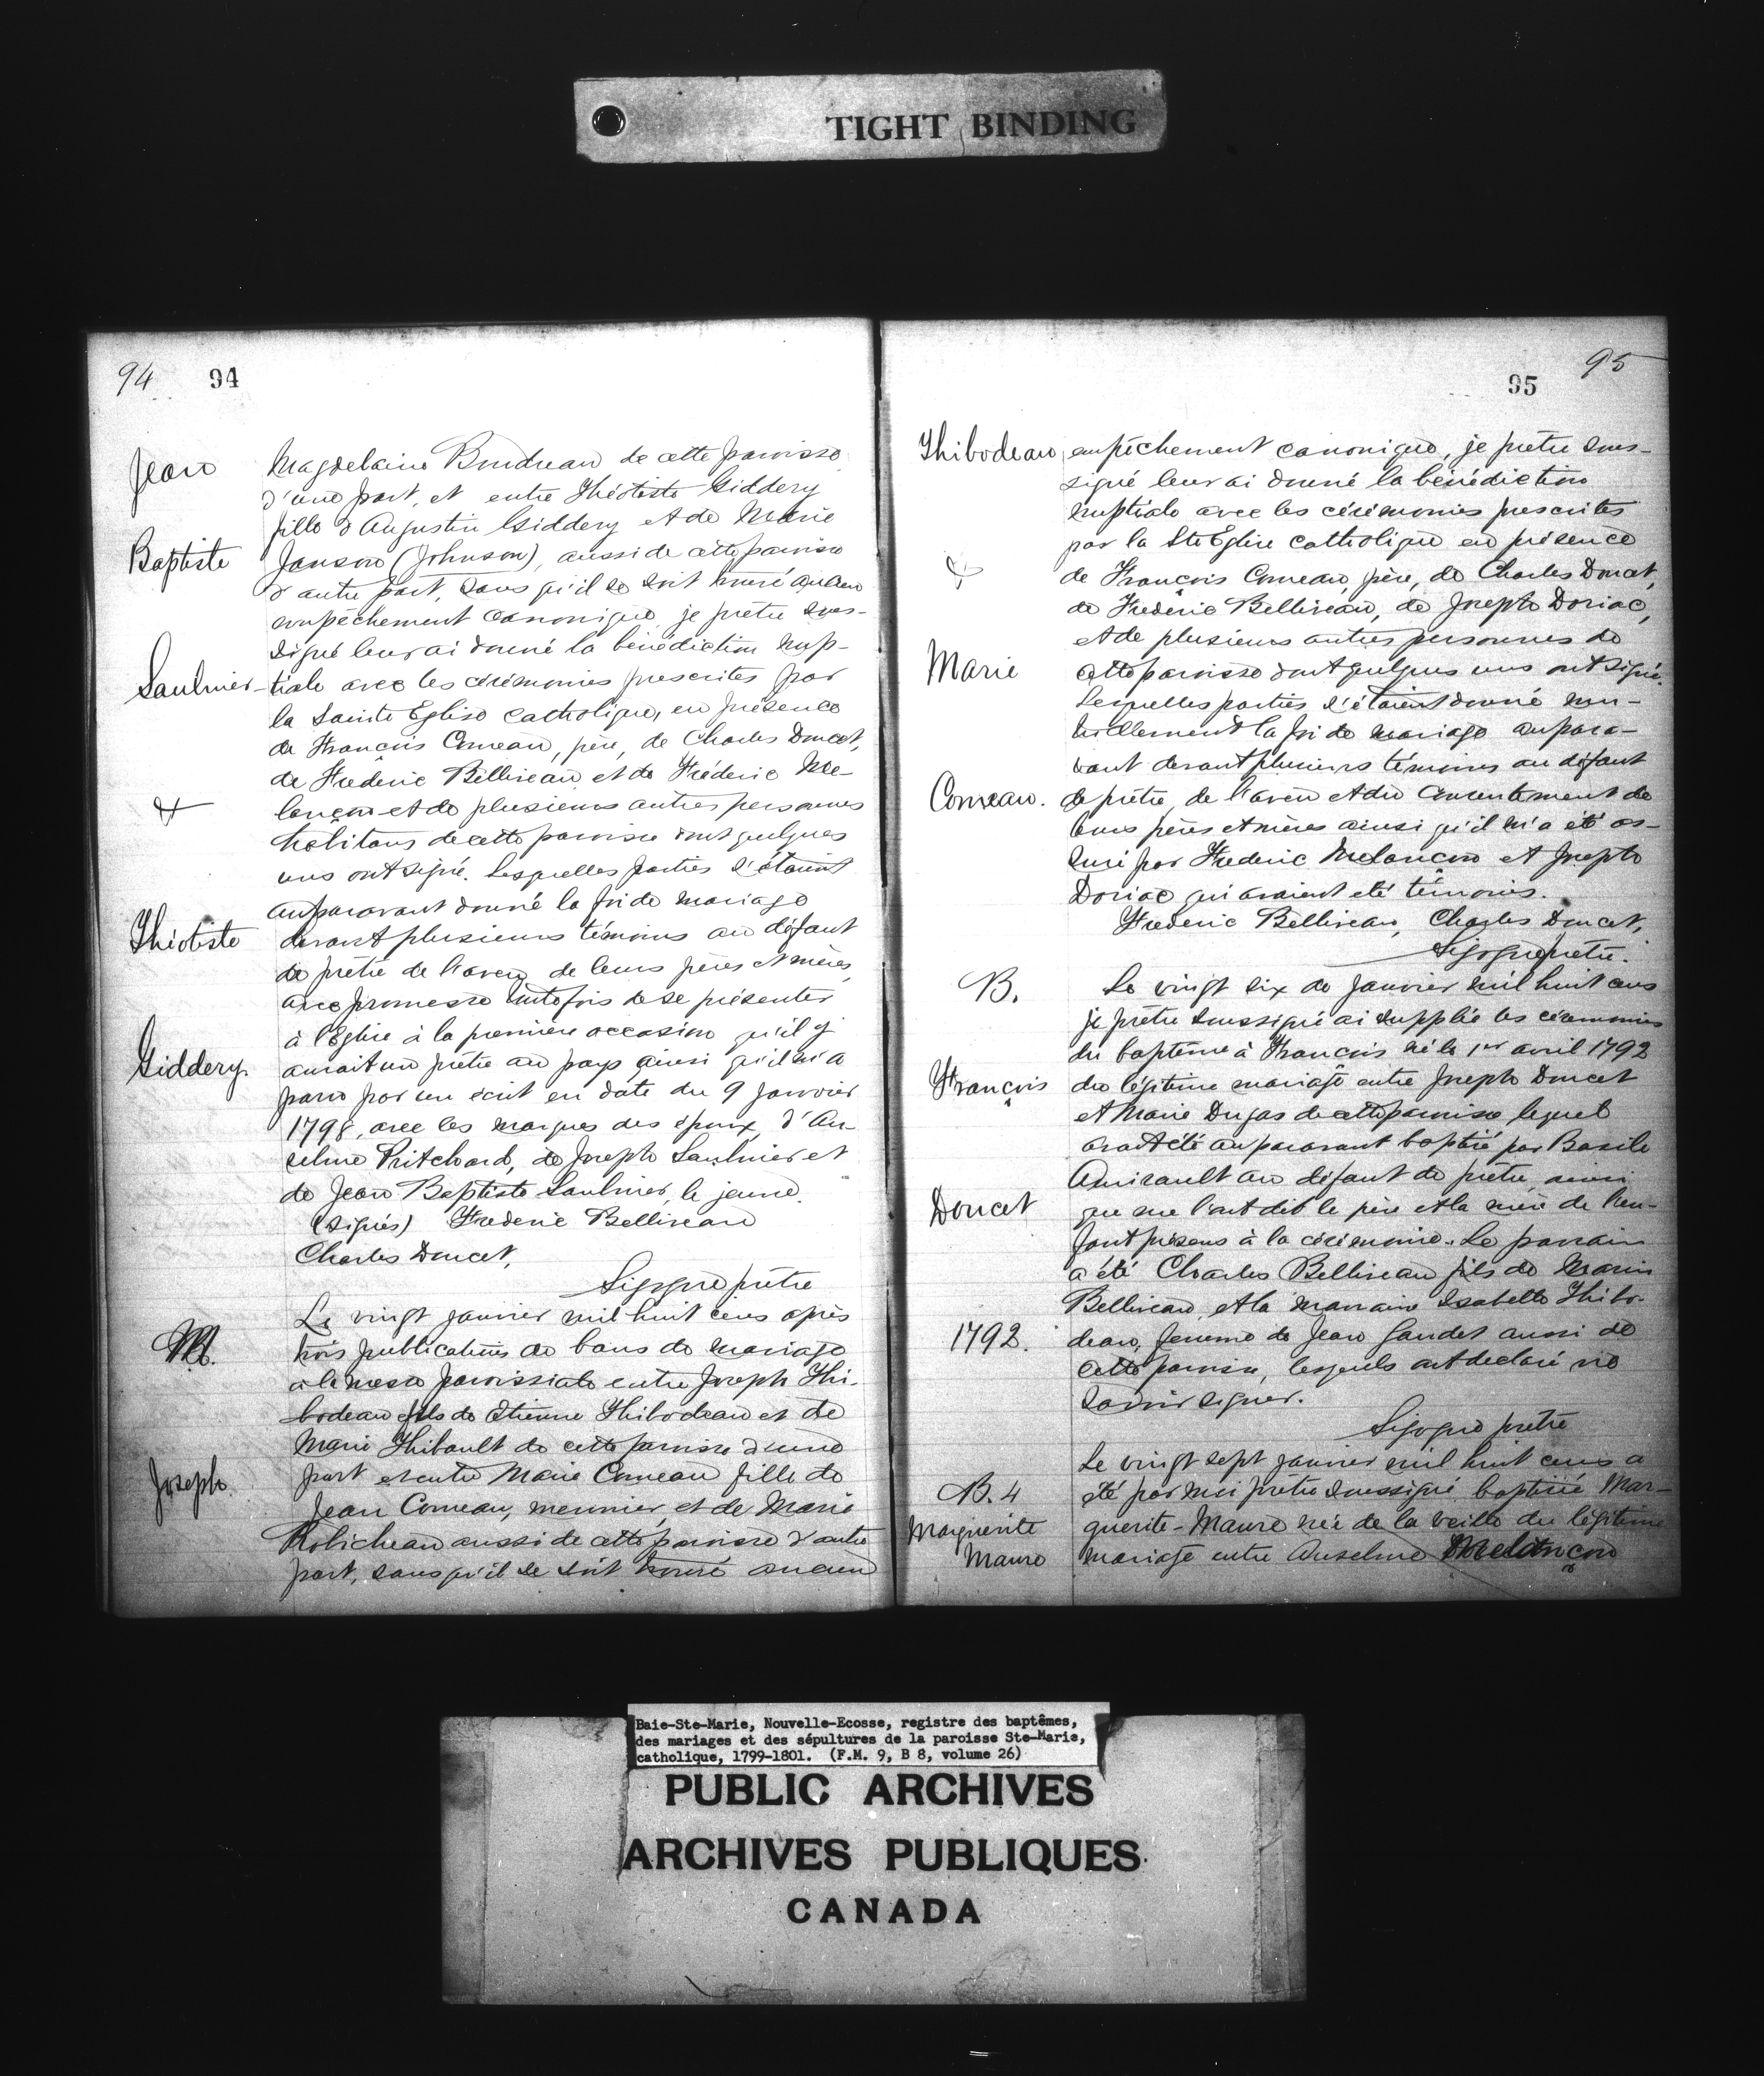 TIGHT BINDING
94 94
Jean
Magdelaine Boudreau de cette paroisse
d'une part, et entre Théotiste Giddery
fille d'Augustin Giddery et de Marie
Baptiste
Janson (Johnson), aussi de cette paroisse
d'autre part, sans qu'il se soit trouvé aucun
empêchement canonique, je prêtre sous-
signé leur ai donné la bénédiction nup-
Saulnier
tiale avec les cérémonies prescrites par
la Sainte Eglise catholique, en présence
de François Comeau, père, de Charles Doucet,
de Frederic Belliveau et de Fréderic Me-
&
lançon et de plusieurs autres personnes
habitans de cette paroisse dont quelques
uns ont signé. Lesquelles parties s'étaient
auparavant donné la foi de mariage
Théotiste
devant plusieurs témoins au défaut
de prêtre de l'aveu de leurs pères et mères,
avec promesse toutefois de se présenter
à l'Eglise à la première occasion qu'il y
Giddery.
aurait un prêtre au pays ainsi qu'il m'a
paru par un écrit en date du 9 janvier
1798, avec les marques des époux, d'An-
selme Pritchard, de Joseph Saulnier et
de Jean Baptiste Saulnier, le jeune.
(signés) Frederic Belliveau
Charles Doucet,
Sigogne prêtre
Le vingt janvier mil huit cens après
M.
trois publications de bans de mariage
à la messe paroissiale entre Joseph Thi-
bodeau fils de Etienne Thibodeau et de
Marie Thibault de cette paroisse d'une
Joseph.
part et entre Marie Comeau fille de
Jean Comeau, meunier, et de Marie
Robicheau aussi de cette paroisse d'autre
part, sans qu'il se soit trouvé aucun
95
95
Thibodeau
empêchement canonique, je prêtre sous-
signé leur ai donné la bénédiction
nuptiale avec les cérémonies prescrites
par la Ste Eglise catholique en présence
&
de François Comeau, père, de Charles Doucet,
de Fréderic Belliveau, de Joseph Doriac,
et de plusieurs autres personnes de
Marie
cette paroisse dont quelques uns ont signé.
Lesquelles parties s'étaient donné mu-
tuellement la foi de mariage aupara-
vant devant plusieurs témoins au défaut
Comeau.
de prêtre, de l'aveu et du consentement de
leurs pères et mères ainsi qu'il m'a été as-
suré par Frederic Melançon et Joseph
Doriac qui avaient été témoins.
Frederic Belliveau, Charles Doucet,
Sigogne prêtre.
B.
Le vingt six de janvier mil huit cens
je prêtre soussigné ai supplée les cérémonies
du baptême à François né le 1er avril 1792
François
du légitime mariage entre Joseph Doucet
et Marie Dugas de cette paroisse lequel
avait été auparavant baptisé par Basile
Amirault au défaut de prêtre, ainsi
Doucet
que me l'ont dit le père et la mère de l'en-
fant présens à la cérémonie. Le parrain
a été Charles Belliveau fils de Marin
Belliveau et la marraine Isabelle Thibo-
1792.
deau, femme de Jean Gaudet aussi de
cette paroisse, lesquels ont declaré ne
savoir signer.
Sigogne prêtre
Le vingt sept janvier mil huit cens a
B. 4
été par moi prêtre soussigné baptisée Mar-
Marguerite
guerite-Maure née de la veille du légitime
Maure
mariage entre Anselme Melançon
Baie-Ste-Marie, Nouvelle-Ecosse, registre des baptêmes,
des mariages et des sépultures de la paroisse Ste-Marie,
catholique, 1799-1801. (F.M. 9, B 8, volume 26)
PUBLIC ARCHIVES
ARCHIVES PUBLIQUES
CANADA